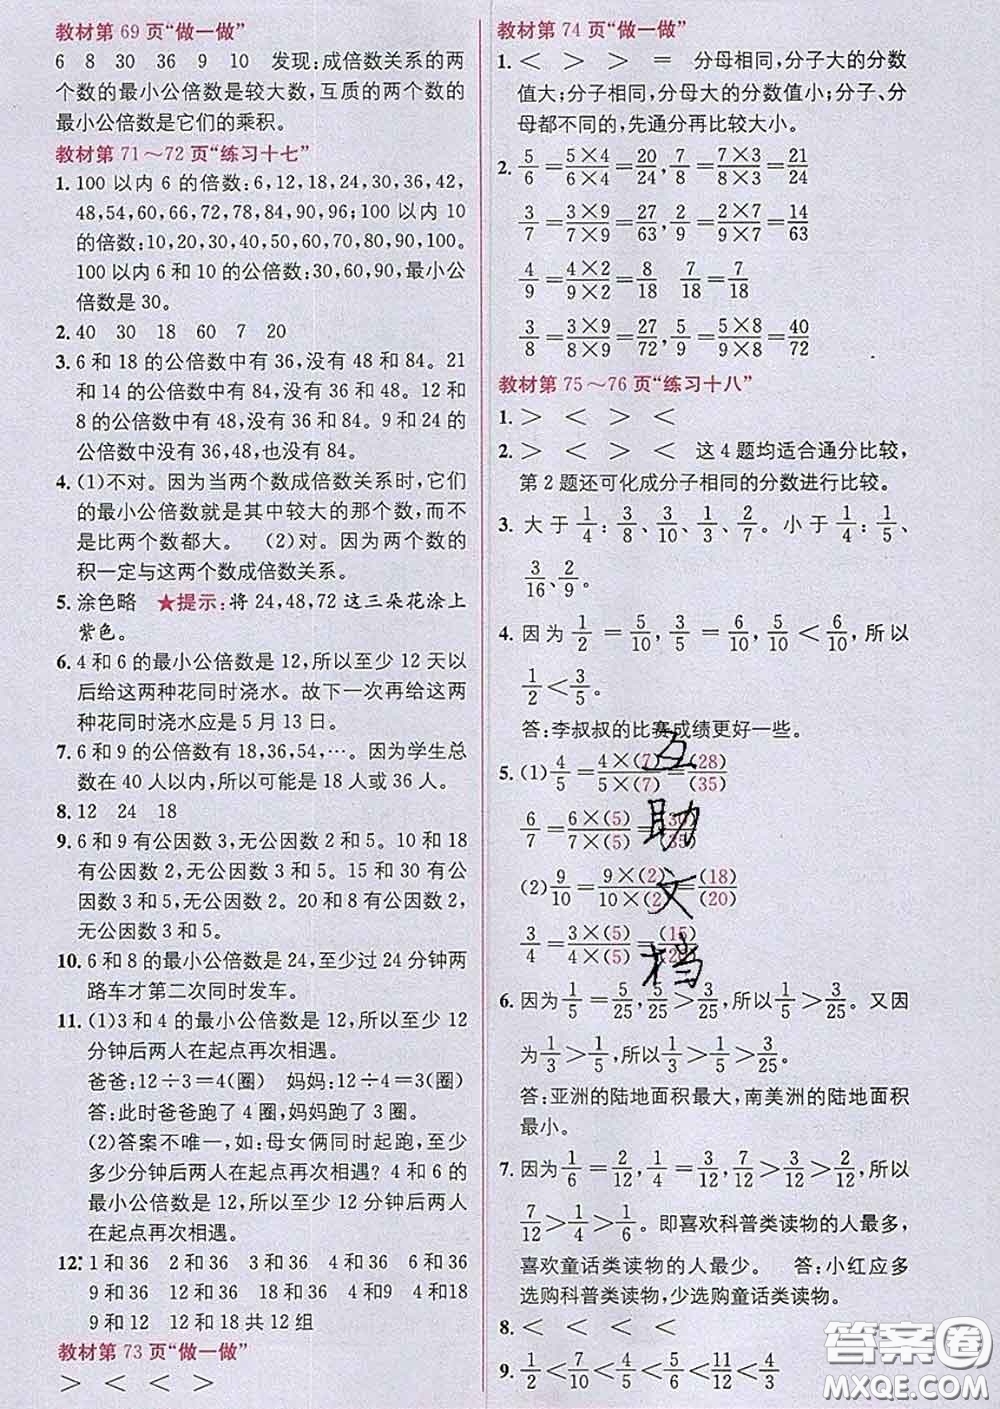 教材第 69 页“做一做”
6 8 30 36 9 10 发现:成倍数关系的两
个数的最小公倍数是较大数,互质的两个数的
最小公倍数是它们的乘积。
教材第 71～72 页“练习十七”
1. 100 以内 6 的倍数:6,12,18,24,30,36,42,
48,54,60,66,72,78,84,90,96;100 以内 10
的倍数:10,20,30,40,50,60,70,80,90,100。
100 以内 6 和 10 的公倍数:30,60,90,最小公
倍数是 30。
2. 40 30 18 60 7 20
3. 6 和 18 的公倍数中有 36,没有 48 和 84。21
和 14 的公倍数中有 84,没有 36 和 48。12 和
8 的公倍数中有 48,没有 36 和 84。9 和 24 的
公倍数中没有 36,48,也没有 84。
4. (1)不对。因为当两个数成倍数关系时,它们
的最小公倍数就是其中较大的那个数,而不
是比两个数都大。 (2)对。因为两个数的
积一定与这两个数成倍数关系。
5. 涂色略 ★提示:将 24,48,72 这三朵花涂上
紫色。
6. 4 和 6 的最小公倍数是 12,所以至少 12 天以
后给这两种花同时浇水。故下一次再给这两
种花同时浇水应是 5 月 13 日。
7. 6 和 9 的公倍数有 18,36,54,…。因为学生总
数在 40 人以内,所以可能是 18 人或 36 人。
8. 12 24 18
9. 6 和 9 有公因数 3,无公因数 2 和 5。10 和 18
有公因数 2,无公因数 3 和 5。15 和 30 有公
因数 3 和 5,无公因数 2。20 和 8 有公因数 2,
无公因数 3 和 5。
10. 6 和 8 的最小公倍数是 24,至少过 24 分钟两
路车才第二次同时发车。
11. (1)3 和 4 的最小公倍数是 12,所以至少 12
分钟后两人在起点再次相遇。
爸爸:12÷3=4(圈) 妈妈:12÷4=3(圈)
答:此时爸爸跑了 4 圈,妈妈跑了 3 圈。
(2)答案不唯一,如:母女俩同时起跑,至少
多少分钟后两人在起点再次相遇? 4 和 6 的
最小公倍数是 12,所以至少 12 分钟后两人
在起点再次相遇。
12. 1 和 36 2 和 36 3 和 36 4 和 36 6 和 36
9 和 36 12 和 36 18 和 36 36 和 36 4 和 9
9 和 12 12 和 18 共 12 组
教材第 73 页“做一做”
> < < >
教材第 74 页“做一做”
1. < > > = 分母相同,分子大的分数
值大;分子相同,分母大的分数值小;分子、分
母都不同的,先通分再比较大小。
2. 5/6=5×4/6×4=20/24,7/8=7×3/8×3=21/24
3/7=3×9/7×9=27/63,2/9=2×7/9×7=14/63
4/9=4×2/9×2=8/18 7/18=7/18
3/8=3×9/8×9=27/72,5/9=5×8/9×8=40/72
教材第 75～76 页“练习十八”
1. > < > <
2. > < > < 这 4 题均适合通分比较,
第 2 题还可化成分子相同的分数进行比较。
3. 大于1/4:3/8、3/10、1/3、2/7。小于1/4:1/5、
3/16、2/9。
4. 因为1/2=5/10,3/5=6/10,5/10<6/10,所以
1/2<3/5。
答:李叔叔的比赛成绩更好一些。
5. (1)4/5=4×(7)/5×(7)=(28)/(35)
6/7=6×(5)/7×(5)=(30)/(35)
(2)9/10=9×(2)/10×(2)=(18)/(20)
3/4=3×(5)/4×(5)=(15)/(20)
互助文档
6. 因为1/5=5/25,5/25>3/25,所以1/5>3/25。又因
为1/3>1/5,所以1/3>1/5>3/25。
答:亚洲的陆地面积最大,南美洲的陆地面积
最小。
7. 因为1/6=2/12,1/4=3/12,7/12>3/12>2/12,所以
7/12>1/4>1/6。即喜欢科普类读物的人最多,
喜欢童话类读物的人最少。 答:小红应多
选购科普类读物,少选购童话类读物。
8. < < < <
9. 1/2<7/10<4/5<11/12<4/3
答案圈
MXQE.COM